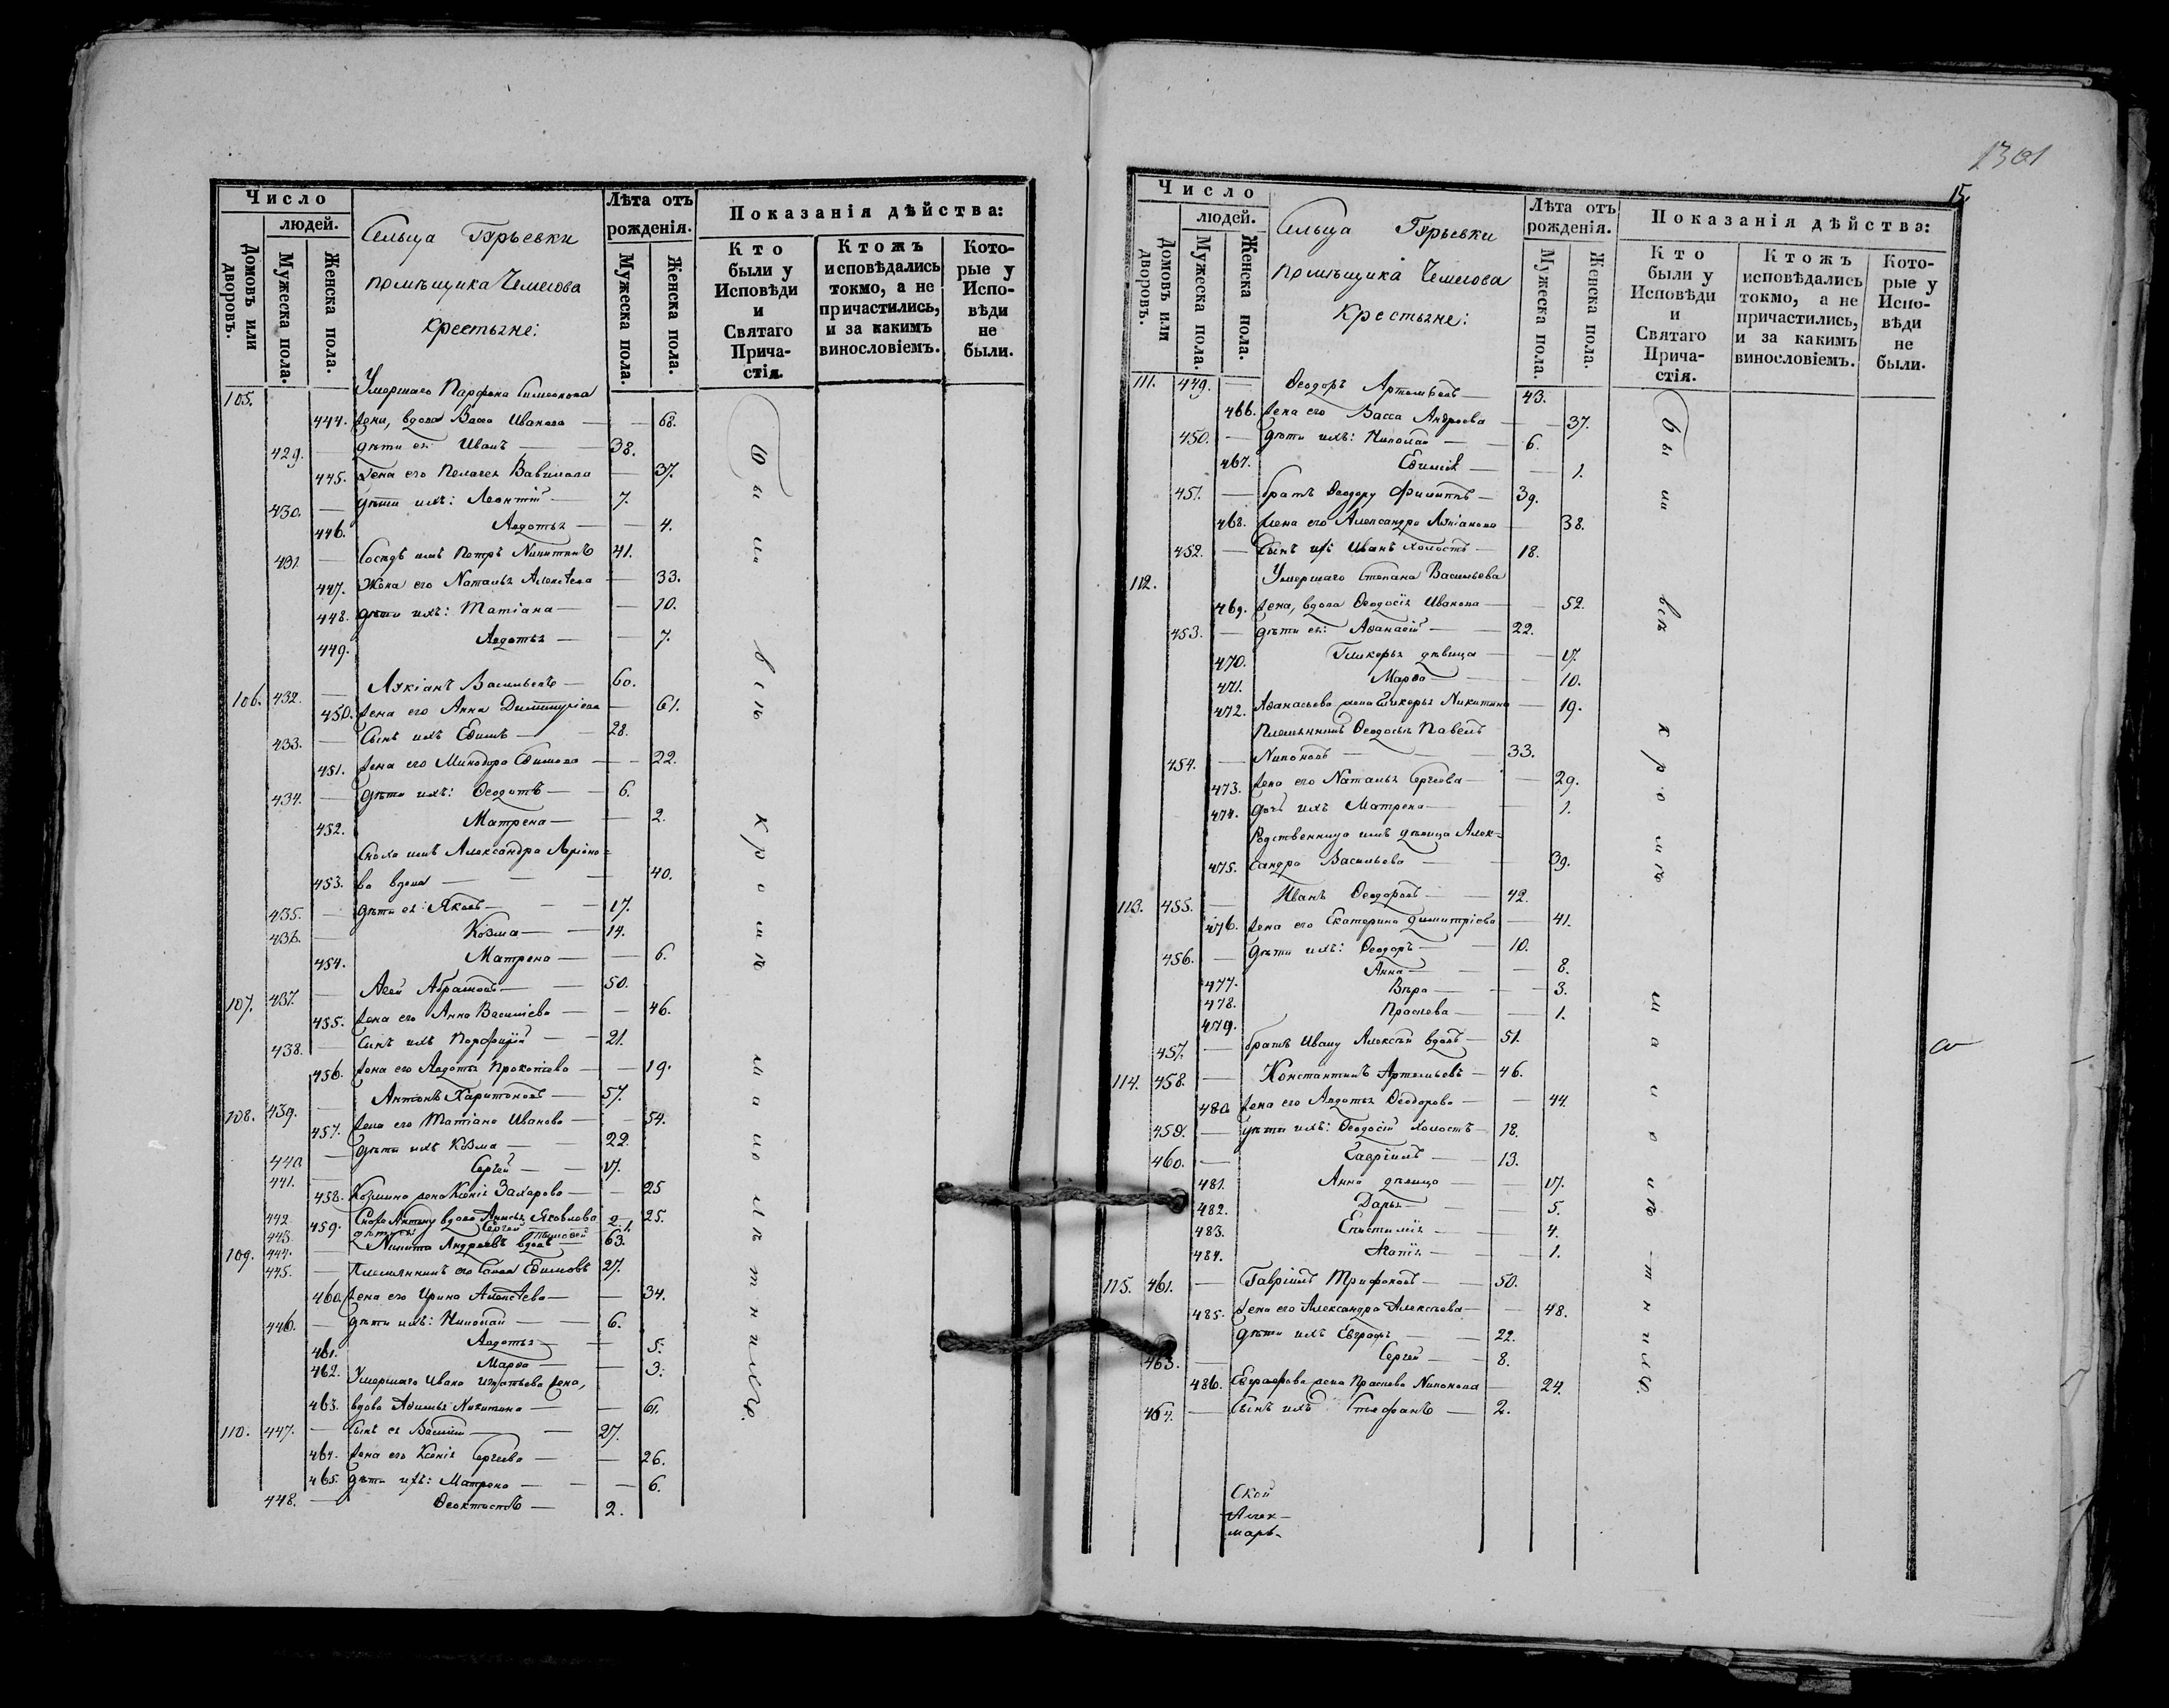 Число
людей.
Домовъ или дворовъ.
Мужеска пола.
Женска пола.
Сельца Гурьевки
помѣщика Чемесова
крестьяне:
Лѣта отъ рожденія.
Мужеска пола.
Женска пола.
Показанія дѣйства:
Кто были у Исповѣди и Святаго Прича-стія.
Ктожъ исповѣдались токмо, а не причастились, и за какимъ винословіемъ.
Кото-рые у Испо-вѣди не были.
105. Умершаго Парфена Симеонова
444. жена, вдова Васса Иванова — 68.
429. — дѣти ея: Иванъ — 38.
445. жена его Пелагея Вавилова — 37.
430. — дѣти ихъ: Леонтій — 7.
446. Авдотья — 4.
431. — Сосѣдъ имъ Петръ Никитинъ 41.
447. Жена его Наталья Алексѣева — 33.
448. дѣти ихъ: Татіана — 10.
449. Авдотья — 7.
106. 432. — Лукіанъ Васильевъ — 60.
450. жена его Анна Димитріева — 61.
433. — Сынъ ихъ Ефимъ — 28.
451. жена его Минодора Ефимова — 22.
434. — дѣти ихъ: Ѳеодотъ — 6.
452. Матрена — 2.
Сноха имъ Александра Ларіоно=
453. ва вдова — 40.
435. — дѣти ея: Яковъ — 17.
436. — Козма — 14.
454. Матрена — 6.
107. 437. — Асей Абрамовъ — 50.
455. жена его Анна Васильева — 46.
438. — Сынъ ихъ Порфирій — 21.
456. жена его Авдотья Прокопіева — 19.
108. 439. — Антонъ Харитоновъ — 57.
457. жена его Татіана Иванова — 54.
440. — дѣти ихъ Козма — 22.
441. — Сергей — 17.
458. Козмина жена Ксенія Захарова — 25
459. Сноха Антону вдова Анисья Яковлева 25.
442. дѣти ея Сергей 2.
443. Тимофей 1.
109. 444. — Никита Андреевъ вдовъ — 63.
445. — Племянникъ его Савва Ефимовъ 27.
460. жена его Ирина Алексѣева — 34.
446. — дѣти ихъ: Николай — 6.
461. Авдотья — 5.
462. Марѳа — 3.
Умершаго Ивана Игнатьева жена,
463. вдова Афимья Никитина — 61.
110. 447. — сынъ ея Василій — 27.
464. жена его Ксенія Сергеева — 26.
465. дѣти ихъ: Матрена — 6.
448. — Ѳеоктистъ — 2.
Были всѣ кромѣ малолѣтнихъ.
1301
15.
Число
людей.
Домовъ или дворовъ.
Мужеска пола.
Женска пола.
Сельца Гурьевки
помѣщика Чемесова
Крестьяне:
Лѣта отъ рожденія.
Мужеска пола.
Женска пола.
Показанія дѣйства:
Кто были у Исповѣди и Святаго Прича-стія.
Ктожъ исповѣдались токмо, а не причастились, и за какимъ винословіемъ.
Кото-рые у Испо-вѣди не были.
111. 449. — Ѳеодоръ Артемьевъ — 43.
466. жена его Васса Андреева — 37.
450. — дѣти ихъ: Николай — 6.
467. 1.
451. — братъ Ѳеодору Филиппъ — 39.
468. жена его Александра Лукіанова — 38.
452. — Сынъ ихъ Иванъ холостъ — 18.
112. Умершаго Степана Васильева
469. жена, вдова Ѳеодосія Иванова — 52.
453. — дѣти ея: Афанасій — 22.
470. Гликерья дѣвица — 17.
471. Марѳа — 10.
472. Афанасьева жена Гликерья Никитина — 19.
Племянникъ Ѳеодосьи Павелъ
454. — Никоновъ — 33.
473. жена его Наталья Сергеева — 29.
474. дочь ихъ Матрена — 1.
Родственница имъ дѣвица Алек=
475. сандра Васильева — 39.
113. 455. — Иванъ Ѳеодоровъ — 42.
476. жена его Екатерина Димитріева — 41.
456. — дѣти ихъ: Ѳеодоръ — 10.
477. Анна — 8.
478. Вѣра — 3.
479. Прасковья — 1.
457. — братъ Ивану Алексѣй вдовъ — 51.
114. 458. — Константинъ Артемьевъ — 46.
480. жена его Авдотья Ѳеодорова — 44.
459. — дѣти ихъ: Ѳеодосій холостъ — 18.
460. — Гавріилъ — 13.
481. Анна дѣвица — 17.
482. Дарья — 5.
483. Епистимія — 4.
484. Агапія — 1.
115. 461. — Гавріилъ Трифоновъ — 50.
485. жена его Александра Алексѣева — 48.
дѣти ихъ Евграфъ — 22.
463. — Сергей — 8.
486. Евграфова жена Прасковья Никонова 24.
464. — Сынъ ихъ Стефанъ — 2.
Были всѣ кромѣ малолѣтнихъ.
Ской
Алек-
марь-